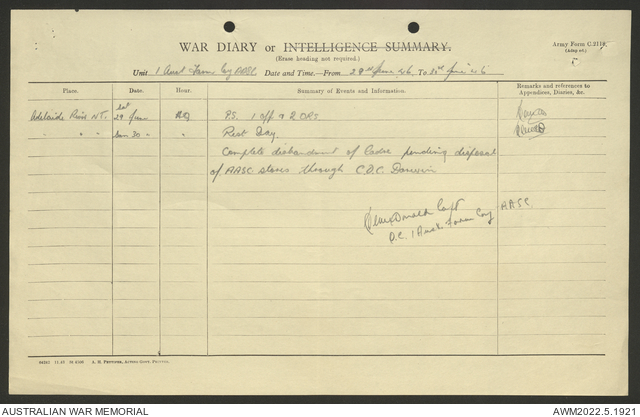 WAR DIARY or INTELLIGENCE SUMMARY.
(Erase heading not required.)
Army Form C.2118.
Unit 1 Aust Farm Coy AASC Date and Time—From 29th June 46 To 30th June 46
Place. Date. Hour. Summary of Events and Information. Remarks and references to Appendices, Diaries, &c.
Adelaide River NT. Sat 29 June HQ PS. 1 Off & 2 ORs
" " " Sun 30 " Rest Day.
Complete disbandment of Cadre pending disposal
of AASC stores through C.D.C. Darwin
Capt
O.C. 1 Aust Farm Coy AASC
AUSTRALIAN WAR MEMORIAL
AWM2022.5.1921